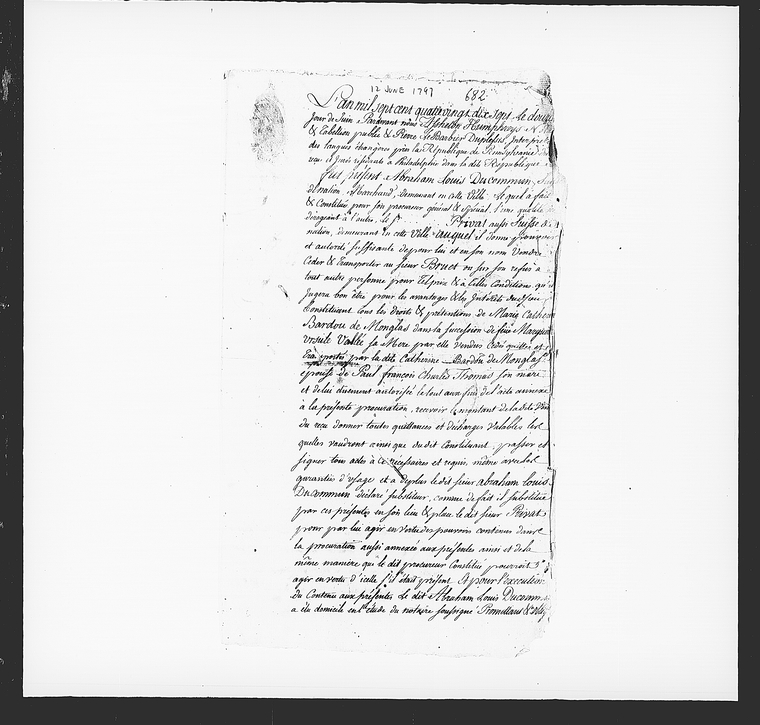 12 JUNE 1797 682
L'an mil sept cent quatre vingt dix sept le douze
Jour de Juin Pardevant nous Asheton Humphreys
& Tabellion public & Pierre LeBarbier Duplessis, Interprete
des langues étrangeres prés la République de Pennsylvanie
reçu et Juré résidents à Philadelphie dans la dite République
Fut présent Abraham Louis Ducommun,
de nation, Marchand, demeurant en cette Ville. Lequel a fait
& Constitué pour son procureur général & Spécial, l'une qualité
dérogeant à l'autre, le Sr Privat aussi Suisse de
nation, demeurant en cette Ville auquel il donne pouvoir
et autorité suffisante de pour lui et en son nom Vendre
Céder & Transporter au Sieur Bruet ou sur son refus à
tout autre personne pour Tel prix & à telles Conditions qu'il
Jugera bon être pour les avantages & les Intérêts du Sieur
Constituant tous les droits & prétentions de Marie Catherine
Bardou de Monglas dans la succession de feue Marguerite
Ursule Vallée sa Mere par elle vendus Cédés quittés et
Transportés par la dite Catherine Bardou de Monglas
épouse de Paul François Charles Thomas son mari
et de lui duement autorisée le tout aux fins de l'acte annexé
à la présente procuration, recevoir le montant de la dite Vente
du reçu donner toutes quittances et décharges Valables les
quelles vaudront ainsi que du dit Constituant, passer et
signer tous actes à ce nécessaires et requis, même avec les
garanties d'usage et a de plus le dit sieur Abraham Louis
Ducommun déclaré substituer, comme de fait il substitue
par ces présentes en son lieu & place le dit sieur Privat
pour par lui agir en vertu des pouvoirs contenus dans
la procuration aussi annexée aux présentes ainsi et de la
même maniere que le dit procureur Constitué pourroit
agir en vertu d'icelle s'il était présent Et pour l'execution
Du Contenu aux présentes Le dit Abraham Louis Ducommun
a élu domicile en l'étude du notaire soussigné Promettant &